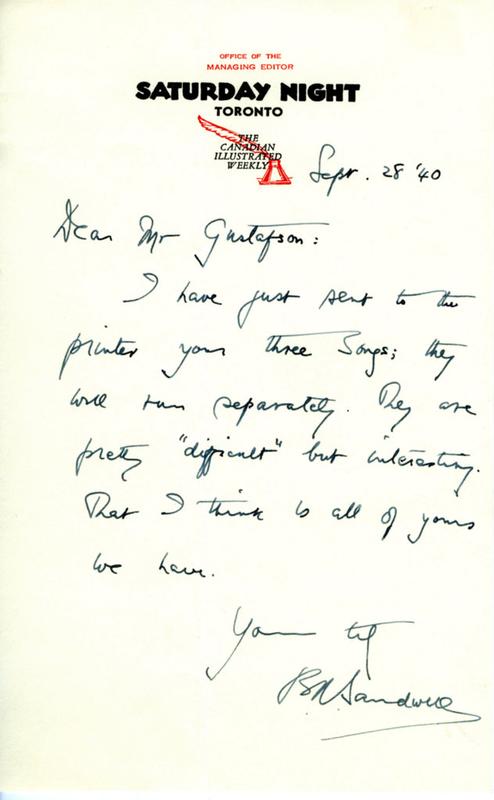 OFFICE OF THE
MANAGING EDITOR
SATURDAY NIGHT
TORONTO
THE
CANADIAN
ILLUSTRATED
WEEKLY
Sept. 28 '40
Dear Mr Gustafson:
I have just sent to the
printer your three Songs; they
will run separately. They are
pretty "difficult" but interesting.
That I think is all of yours
we have.
Yours
B K Sandwell